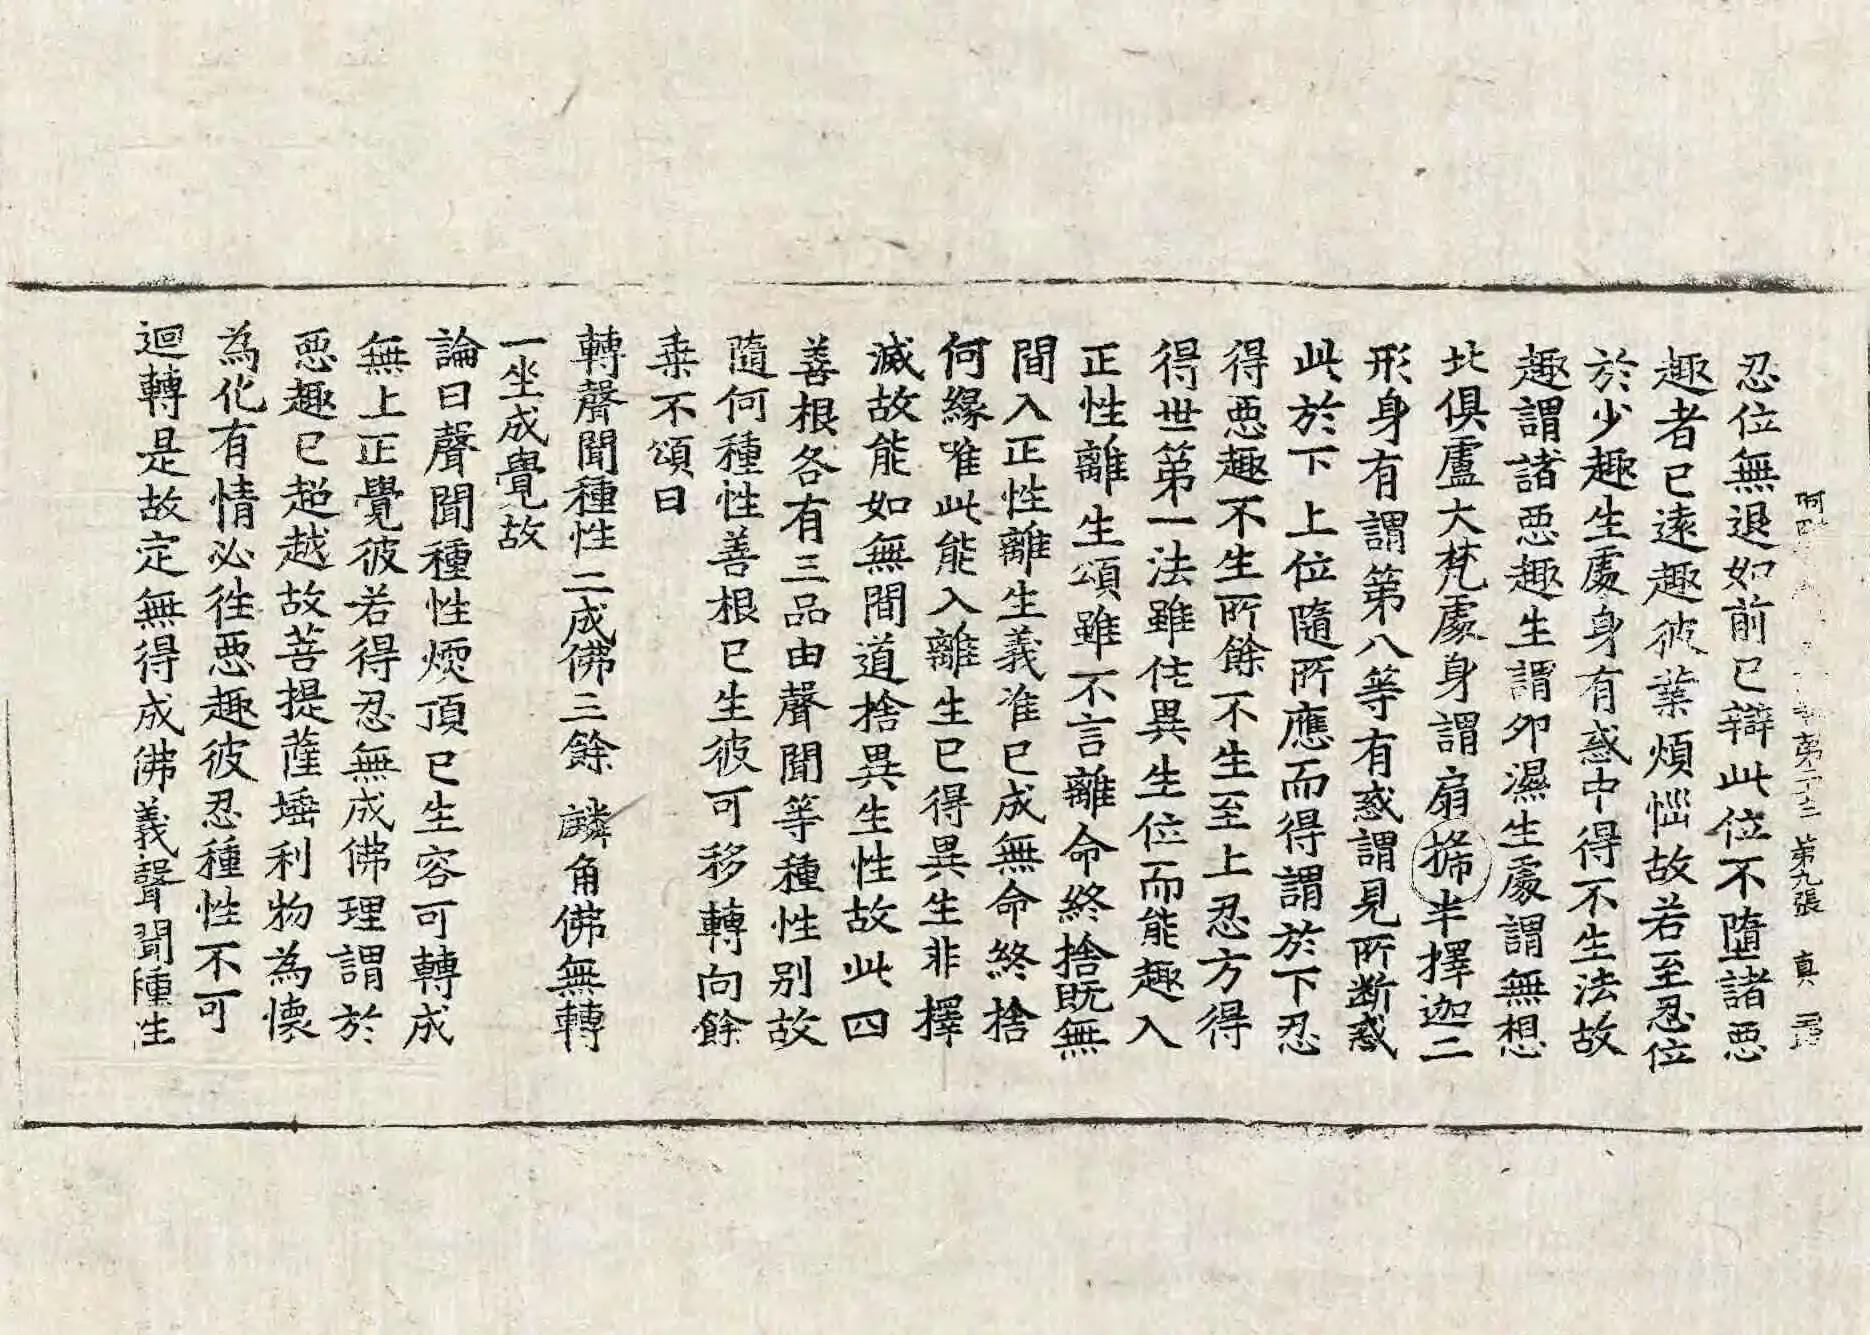 第九張 真
忍位無退如前已辯此位不墮諸惡
趣者已遠趣彼業煩惱故若至忍位
於少趣生處身有惑中得不生法故
趣謂諸惡趣生謂卵濕生處謂無想
北俱盧大梵處身謂扇搋半擇迦二
形身有謂第八等有惑謂見所斷惑
此於下上位隨所應而得謂於下忍
得惡趣不生所餘不生至上忍方得
得世第一法雖住異生位而能趣入
正性離生頌雖不言離命終捨既無
間入正性離生義准已成無命終捨
何緣唯此能入離生已得異生非擇
滅故能如無間道捨異生性故此四
善根各有三品由聲聞等種性別故
隨何種性善根已生彼可移轉向餘
乗不頌曰
轉聲聞種性二成佛三餘 麟角佛無轉
一坐成覺故
論曰聲聞種性煗頂已生容可轉成
無上正覺彼若得忍無成佛理謂於
惡趣已超越故菩提薩埵利物為懷
為化有情必往惡趣彼忍種性不可
迴轉是故定無得成佛義聲聞種性